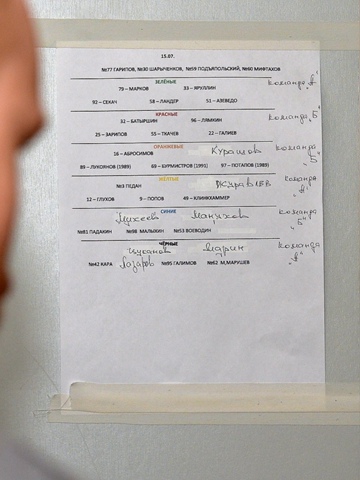 15.07.
№77 ГАРИПОВ, №30 ШАРЫЧЕНКОВ, №59 ПОДЪЯПОЛЬСКИЙ, №60 МИФТАХОВ
ЗЕЛЁНЫЕ
79 – МАРКОВ 33 – ЯРУЛЛИН команда "А"
92 – СЕКАЧ 58 – ЛАНДЕР 51 – АЗЕВЕДО
КРАСНЫЕ
32 – БАТЫРШИН 96 – ЛЯМКИН команда "Б"
25 – ЗАРИПОВ 55 – ТКАЧЕВ 22 – ГАЛИЕВ
ОРАНЖЕВЫЕ
16 – АБРОСИМОВ Курашов команда "Б"
89 – ЛУКОЯНОВ (1989) 69 – БУРМИСТРОВ (1991) 97 – ПОТАПОВ (1989)
ЖЁЛТЫЕ
№3 ПЕДАН Журавлев команда "А"
12 – ГЛУХОВ 9 – ПОПОВ 49 – КЛИНКХАММЕР
СИНИЕ
Михеев Манухов команда "Б"
№81 ПАДАКИН №98 МАЛЫХИН №53 ВОЕВОДИН
ЧЁРНЫЕ
Цыганов Марин команда "А"
№42 КАРА Лазарев №95 ГАЛИМОВ №62 М,МАРУШЕВ